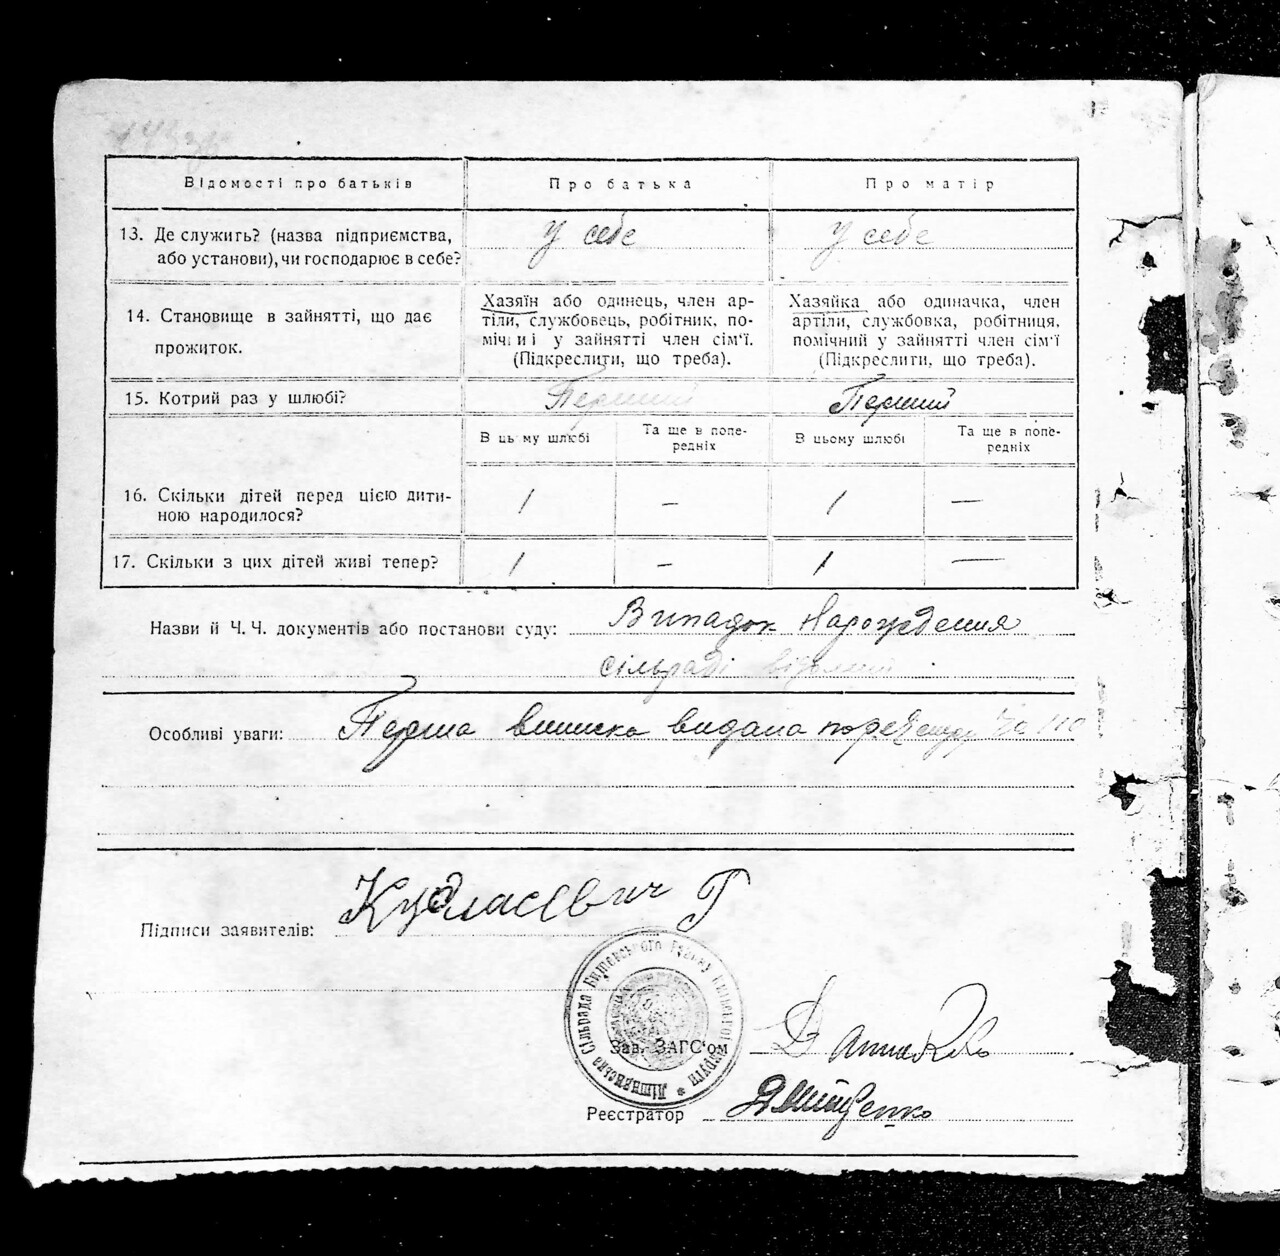 Відомості про батьків
Про батька
Про матір
13. Де служить? (назва підприємства, або установи), чи господарює в себе?
у себе
у себе
14. Становище в зайнятті, що дає прожиток.
Хазяїн або одинець, член ар-
тіли, службовець, робітник, по-
мічний у зайнятті член сім'ї.
(Підкреслити, що треба).
Хазяйка або одиначка, член
артіли, службовка, робітниця,
помічний у зайнятті член сім'ї
(Підкреслити, що треба).
15. Котрий раз у шлюбі?
Перший
Перший
В цьому шлюбі
Та ще в попе-
редніх
В цьому шлюбі
Та ще в попе-
редніх
16. Скільки дітей перед цією дити-
ною народилося?
1
—
1
—
17. Скільки з цих дітей живі тепер?
1
—
1
—
Назви й Ч. Ч. документів або постанови суду: Випадок Нарождения
сільраді відомий
Особливі уваги: Перша виписка видана
Підписи заявителів: Кудласевич Г
Зав. ЗАГС'ом
Реєстратор